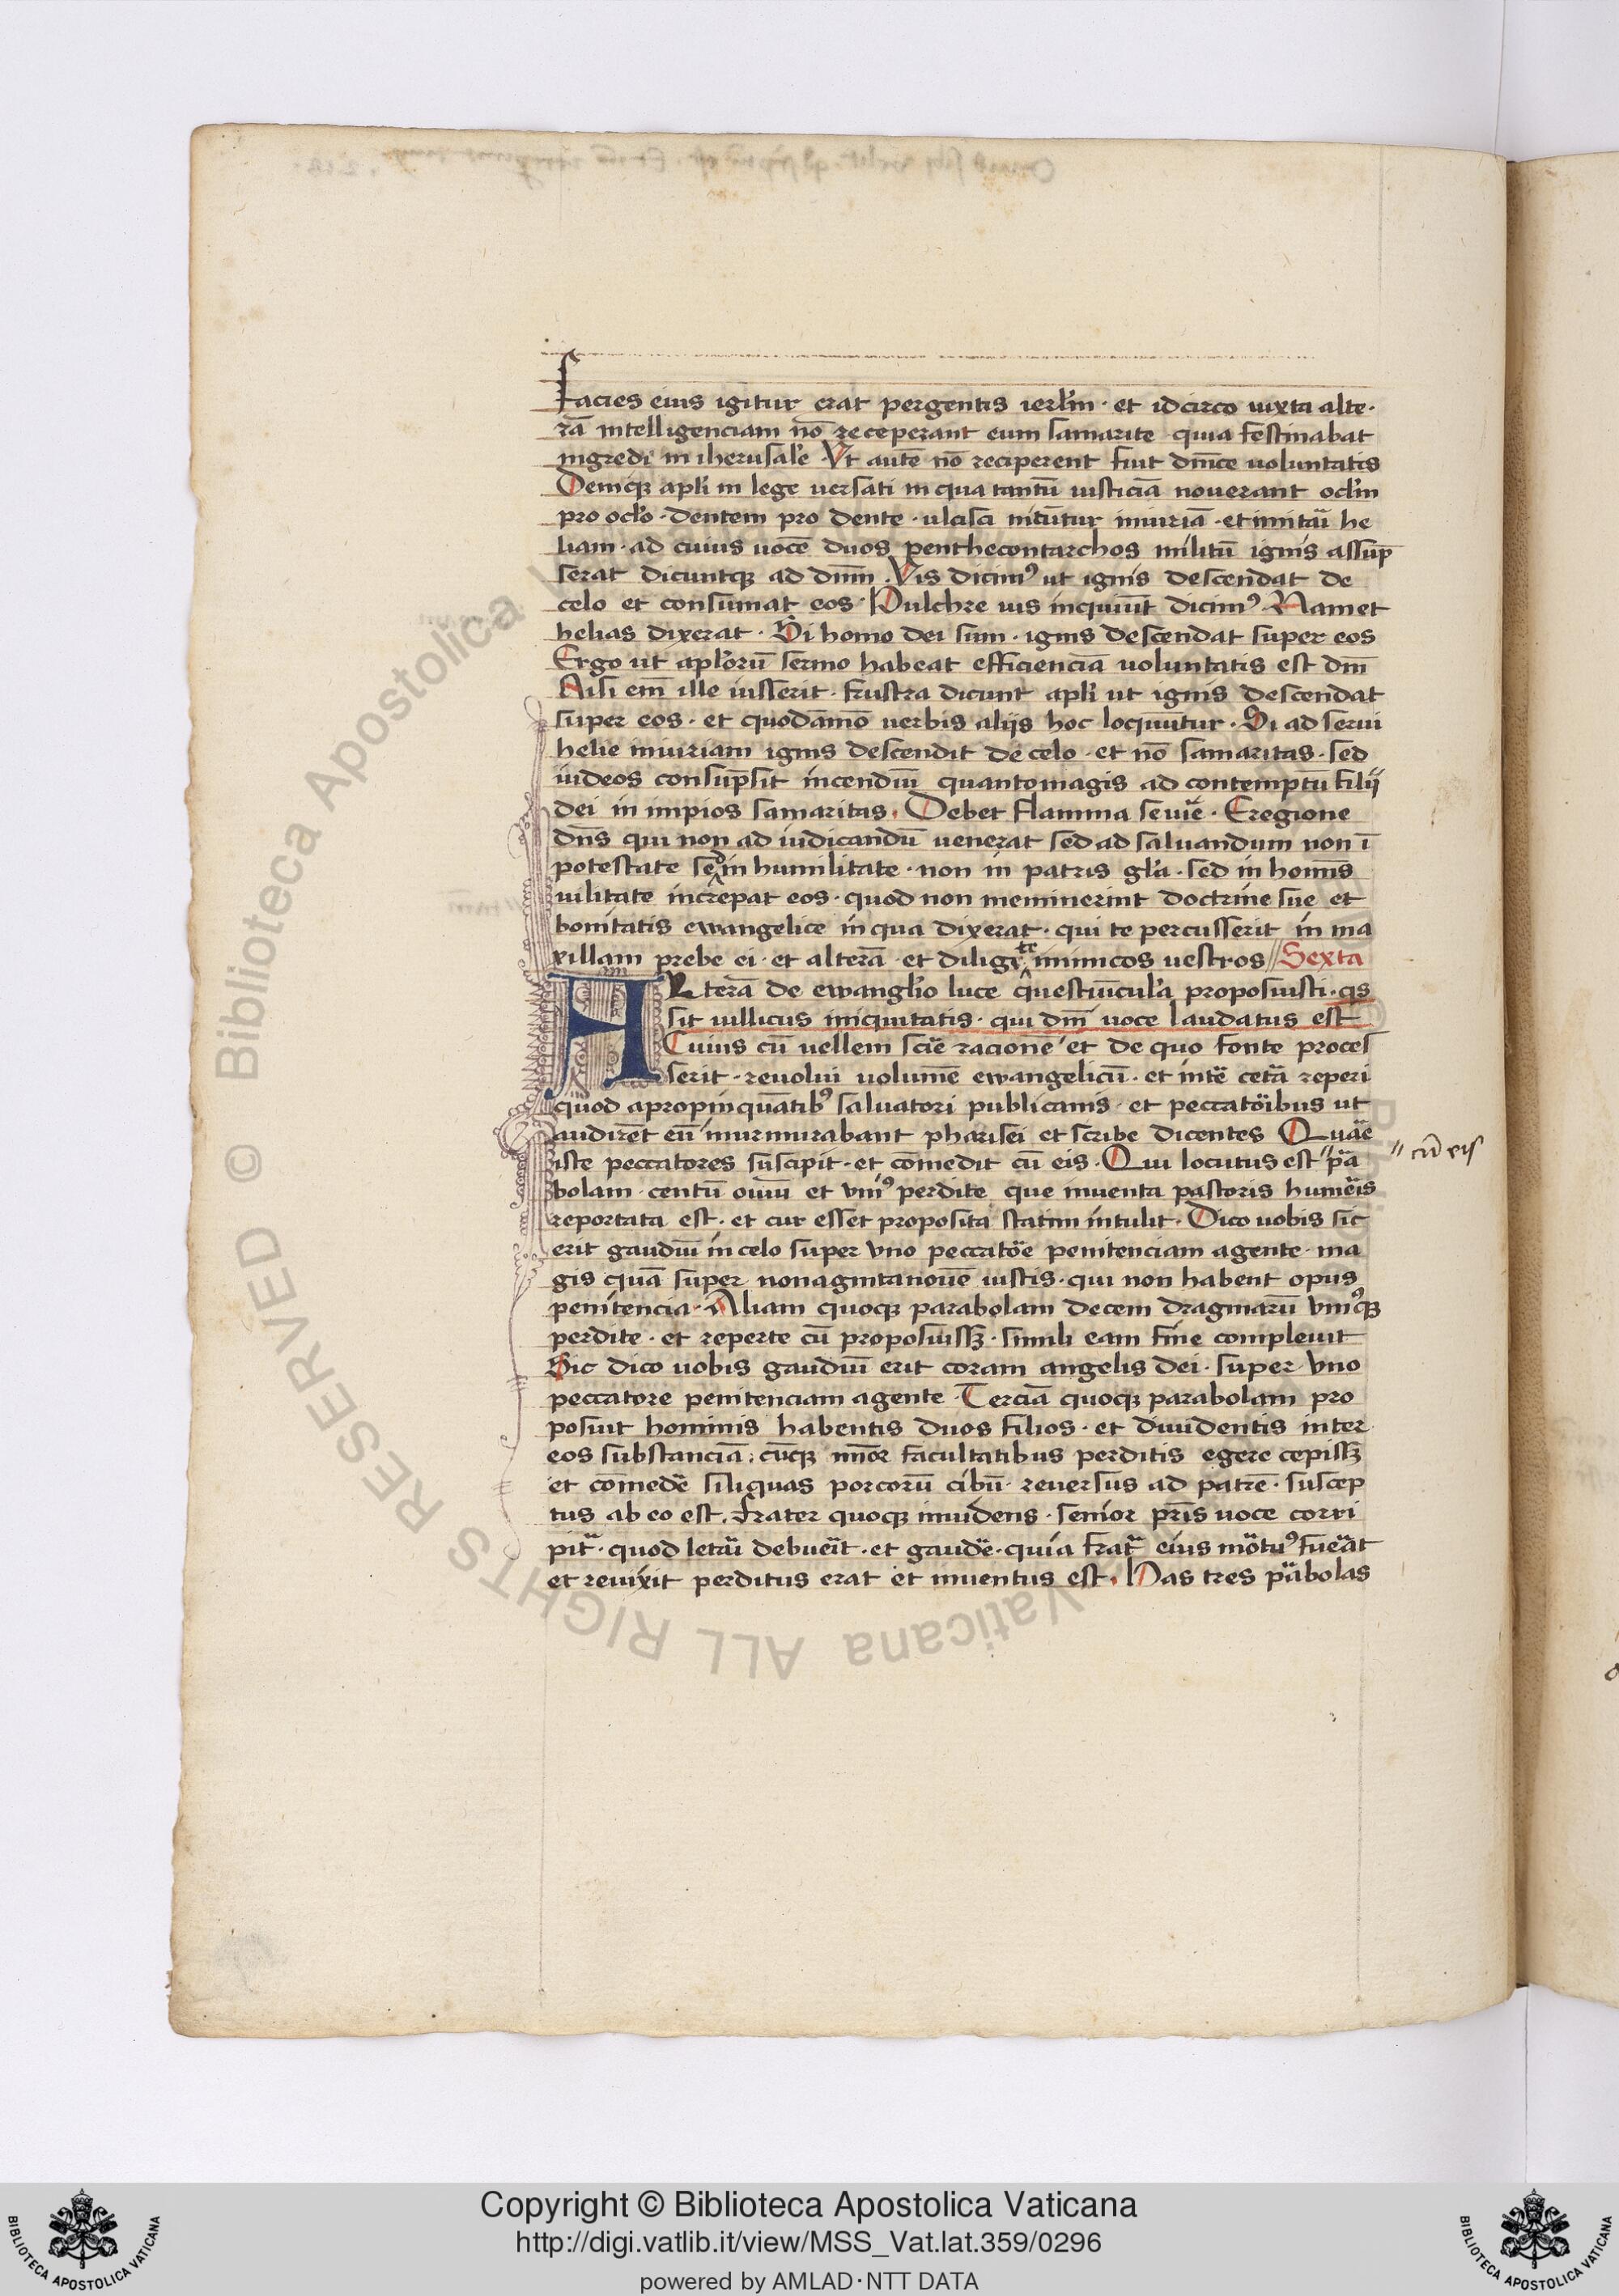 facies eius igitur erat pergentis ierl̄m · et idcirco iuxta alte·
rā intelligenciam nō receperant eum samarite quia festinabat
ingredi in iherusalē Vt autē nō reciperent fuit dnīce uoluntatis
Deniqꝫ apl̄i in lege uersati in qua tantū iusticiā nouerant ocl̄m
pro ocl̄o · dentem pro dente · ulcisci nitūtur iniuriā · et imitāi he
liam · ad cuius uocē duos penthecontarchos militū ignis assūp
serat dicuntqꝫ ad dnm̄ . Vis dicimꝰ ut ignis descendat de
celo et consumat eos · Pulchre uis inquiūt dicimꝰ · Nam et
helias dixerat · Si homo dei sum · ignis descendat super eos
Ergo ut apl̄orū sermo habeat efficienciā uoluntatis est dnī
Nisi em̄ ille iusserit · frustra dicunt apl̄i ut ignis descendat
super eos · et quodāmō uerbis alijs hoc loquūtur · Si ad serui
helie iniuriam ignis descendit de celo · et nō samaritas · sed
iudeos consūpsit incendiū quantomagis ad contemptū filij
dei in impios samaritas . Debet flamma seuiē · Eregione
dn̄s qui non ad iudicandū uenerat sed ad saluandum non ī
potestate sed in humilitate · non in patris gl̄a · sed in homīs
uilitate increpat eos · quod non meminerint doctrine sue et
bonitatis ewangelice in qua dixerat · qui te percusserit in ma
xillam prebe ei · et alterā · et diligite inimicos uestros // Sexta
ALterā de ewangl̄io luce questiūcul̄a proposuisti · qs
sit uillicus iniquitatis · qui dnī uoce laudatus est
Cuius cū uellem sciē racionē et de quo fonte proces
serit · reuolui uolumē ewangelicū · et intē cetā reperi
quod apropinquātibꝰ saluatori publicanis · et peccatoībus ut
audirēt eū murmurabant pharisei et scribe dicentes Quāe
iste peccatores suscipit · et cōmedit cū eis · Qui locutus est // pāa
// cū eis
bolam · centū ouiū et vniꝰ perdite que inuenta pastoris humēis
reportata est · et cur esset proposita statim intulit · Dico uobis sic
erit gaudiū in celo super vno peccatōe penitenciam agente · ma
gis quā super nonagintanouē iustis · qui non habent opus
penitencia · Aliam quoqꝫ parabolam decem dragmarū vniꝰqꝫ
perdite · et reperte cū proposuissꝫ · simili eam fine compleuit
Sic dico uobis gaudiū erit coram angelis dei · super vno
peccatore penitenciam agente · Terciā quoqꝫ parabolam pro
posuit hominis habentis duos filios · et diuidentis inter
eos substanciā ; cūqꝫ minor facultatibus perditis egere cepissꝫ
et cōmedē siliquas porcorū cibū · reuersus ad patrē · suscep
tus ab eo est . frater quoqꝫ inuidens · senior pr̄is uoce corri
pit̄ · quod letāi debueīt · et gaudē · quia frat̄ eius mōtuꝰ fueāt
et reuixit perditus erat et inuentus est . Has tres pāabolas
Copyright © Biblioteca Apostolica Vaticana
http://digi.vatlib.it/view/MSS_Vat.lat.359/0296
powered by AMLAD·NTT DATA
BIBLIOTECA APOSTOLICA VATICANA
BIBLIOTECA APOSTOLICA VATICANA
Biblioteca Apostolica Vaticana ALL RIGHTS RESERVED ©